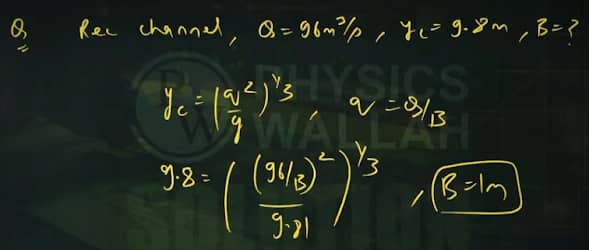 Q Rec channel, Q = 96m³/s, yc = 9.8m, B=?
PHYSICS
WALLAH
yc = (q²/g)^1/3, q = Q/B
9.8 = ((96/B)²/9.81)^1/3, B=1m